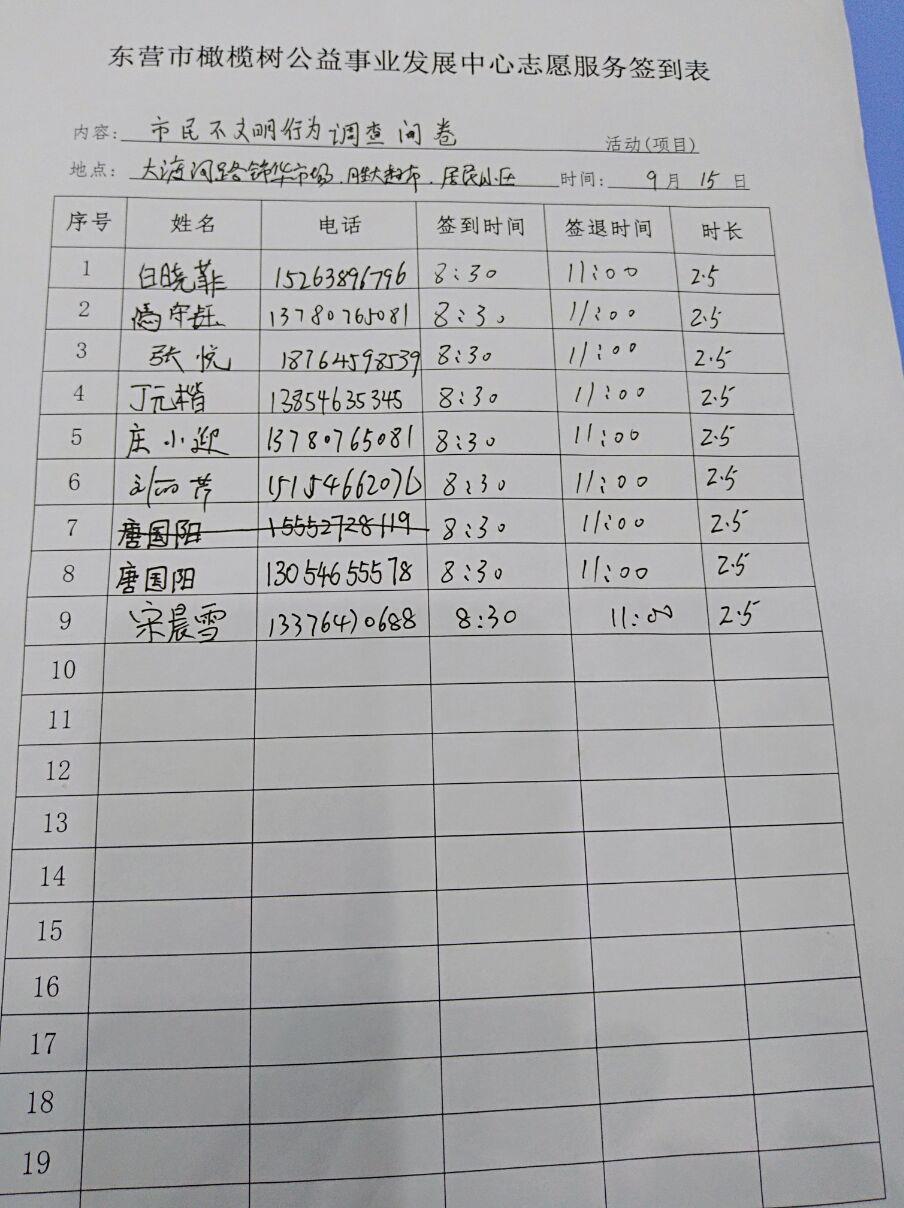 东营市橄榄树公益事业发展中心志愿服务签到表
内容: 市民不文明行为调查问卷 活动(项目)
地点: 大渡河路锦华市场.胜大超市.居民小区 时间: 9月15日
序号 姓名 电话 签到时间 签退时间 时长
1 白晓菲 15263896796 8:30 11:00 2.5
2 冯守钰 13780765081 8:30 11:00 2.5
3 张悦 18764598539 8:30 11:00 2.5
4 丁元楷 13854635345 8:30 11:00 2.5
5 庄小迎 13780765081 8:30 11:00 2.5
6 刘丽芹 15154662076 8:30 11:00 2.5
7 唐国阳 15552728119 8:30 11:00 2.5
8 唐国阳 13054655578 8:30 11:00 2.5
9 宋晨雪 13376470688 8:30 11:00 2.5
10
11
12
13
14
15
16
17
18
19